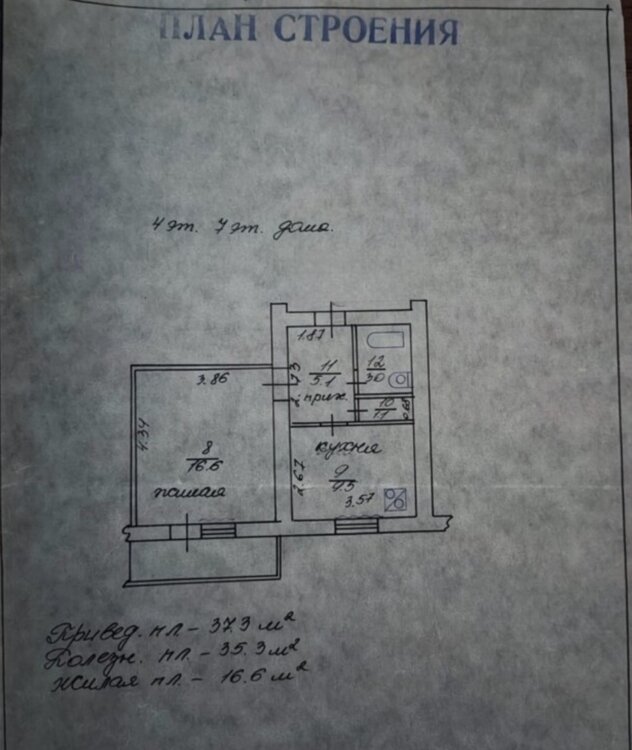 ПЛАН СТРОЕНИЯ
4 эт. 7 эт. дома.
1.87
3.86
2.73
11
5.1
прих.
12
3.0
10
1.1
0.68
4.34
8
16.6
жилая
кухня
2.67
9
9.5
3.57
Привед. пл - 37.3 м²
Полезн. пл. - 35.3 м²
Жилая пл. - 16.6 м²